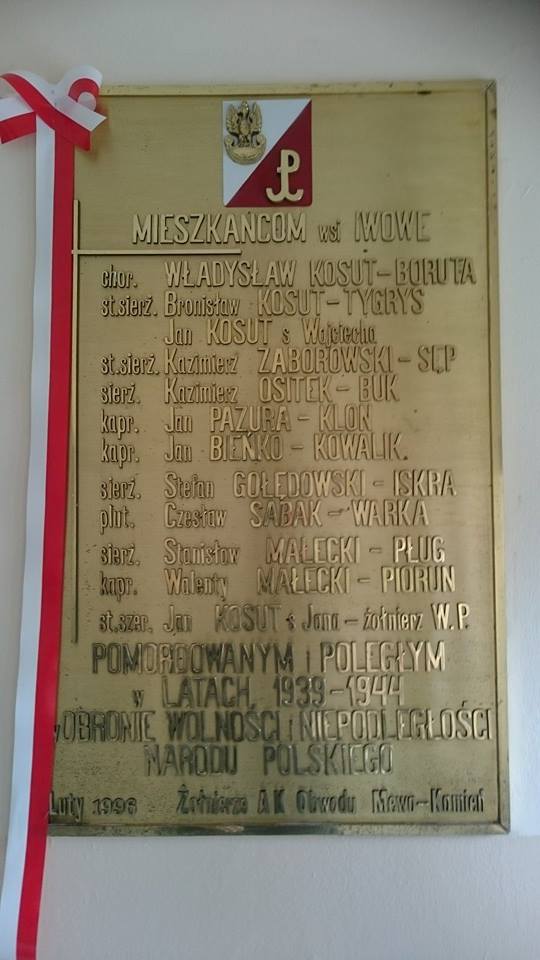 MIESZKAŃCOM wsi IWOWE
chor. WŁADYSŁAW KOSUT-BORUTA
st.sierż. Bronisław KOSUT-TYGRYS
Jan KOSUT s Wojciecha
st.sierż. Kazimierz ZABOROWSKI - SĘP
sierż. Kazimierz OSITEK - BUK
kapr. Jan PAZURA - KLON
kapr. Jan BIEŃKO - KOWALIK.
sierż. Stefan GOŁĘDOWSKI - ISKRA
plut. Czesław SABAK - WARKA
sierż. Stanisław MAŁECKI - PŁUG
kapr. Walenty MAŁECKI - PIORUN
st.szer. Jan KOSUT s Jana - żołnierz W.P.
POMORDOWANYM i POLEGŁYM
w LATACH 1939-1944
w OBRONIE WOLNOŚCI i NIEPODLEGŁOŚCI
NARODU POLSKIEGO
Luty 1996 Żołnierze AK Obwodu Mewa-Kamień